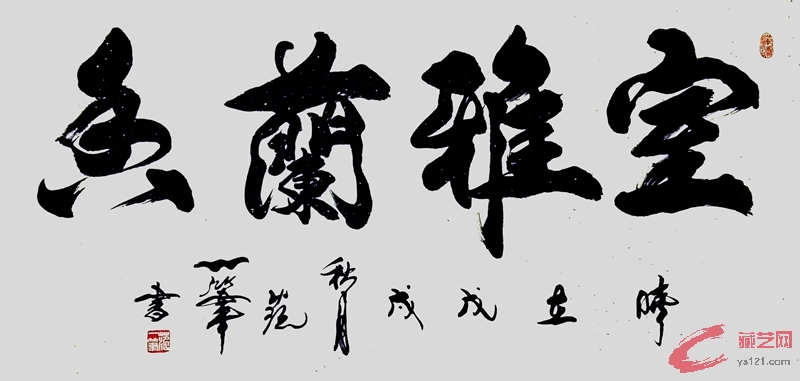 室雅蘭香
時在戊戌秋月一筆書
藏艺网
ys121.com